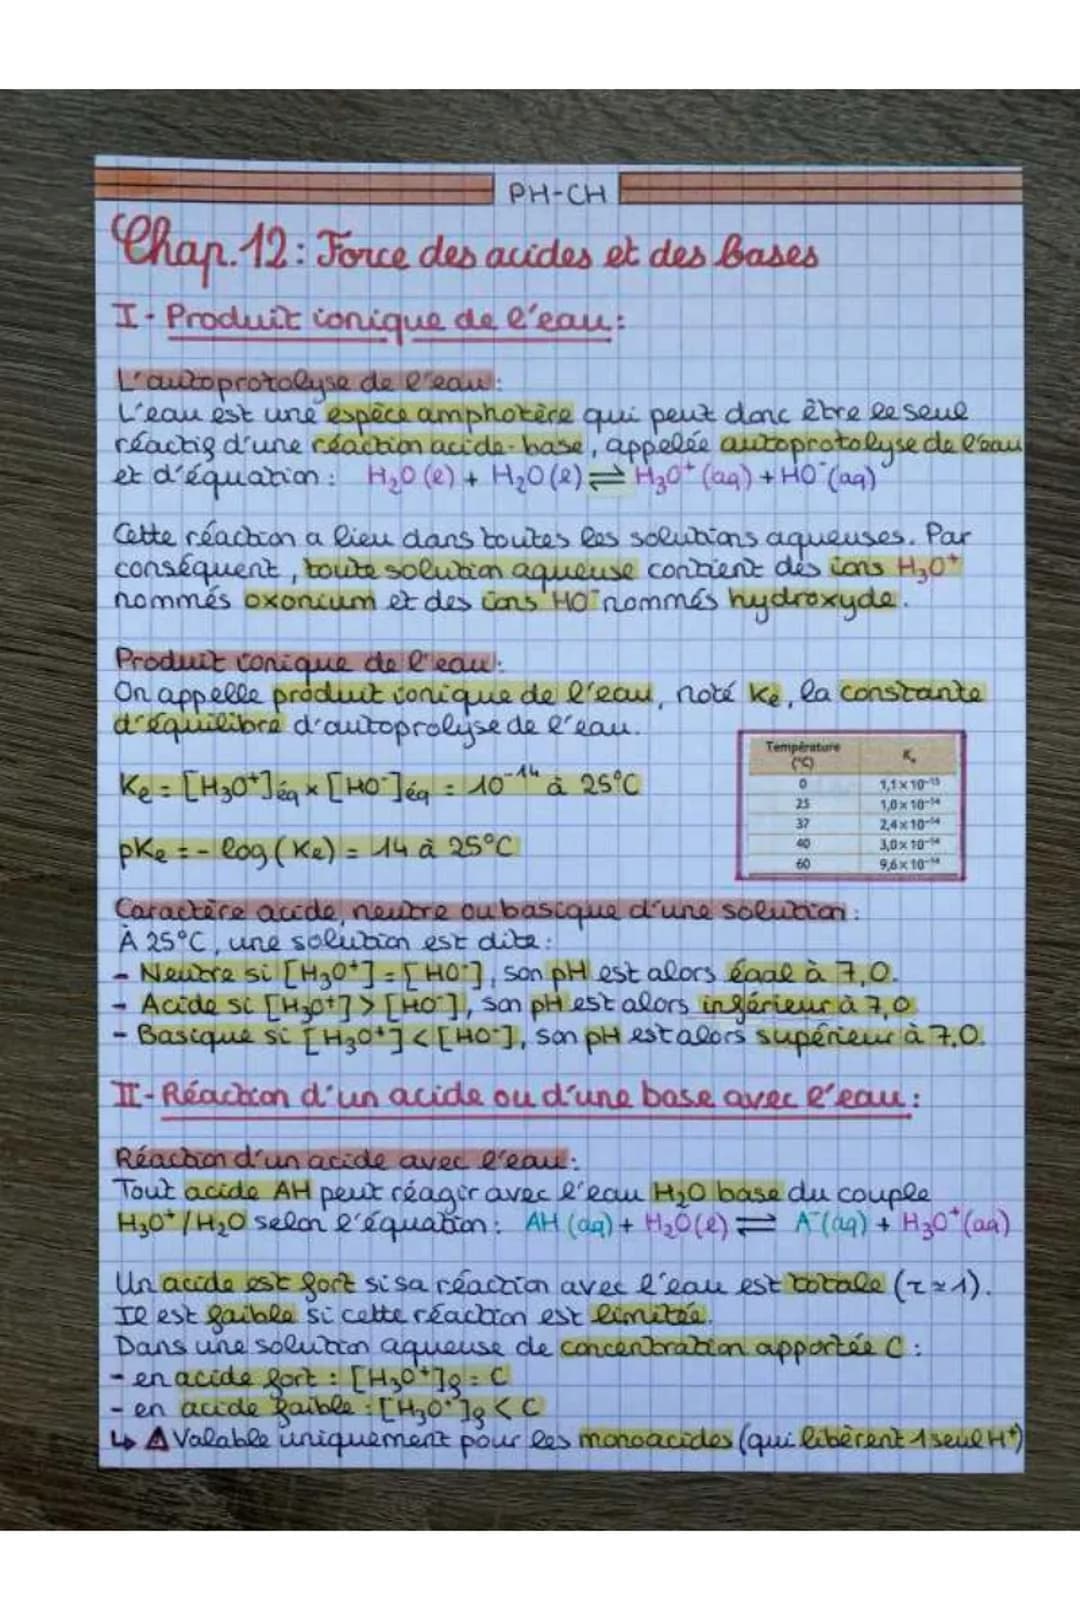 PH-CH
Chap. 12 : Force des acides et des bases
I - Produit ionique de l'eau :
L'autoprotolyse de l'eau :
L'eau est une espèce amphotère qui peut donc être le seul
réactif d'une réaction acide-base, appelée autoprotolyse de l'eau
et d'équation : H₂O (l) + H₂O (l) ⇌ H₃O⁺ (aq) + HO⁻ (aq)
Cette réaction a lieu dans toutes les solutions aqueuses. Par
conséquent, toute solution aqueuse contient des ions H₃O⁺
nommés oxonium et des ions HO⁻ nommés hydroxyde.
Produit ionique de l'eau :
On appelle produit ionique de l'eau, noté Ke, la constante
d'équilibre d'autoprolyse de l'eau.
Ke = [H₃O⁺]éq × [HO⁻]éq = 10⁻¹⁴ à 25°C
pKe = - log (Ke) = 14 à 25°C
Température (°C) Kₑ
0 1,1 × 10⁻¹⁵
25 1,0 × 10⁻¹⁴
37 2,4 × 10⁻¹⁴
40 3,0 × 10⁻¹⁴
60 9,6 × 10⁻¹⁴
Caractère acide, neutre ou basique d'une solution :
À 25°C, une solution est dite :
- Neutre si [H₃O⁺] = [HO⁻], son pH est alors égal à 7,0.
- Acide si [H₃O⁺] > [HO⁻], son pH est alors inférieur à 7,0
- Basique si [H₃O⁺] < [HO⁻], son pH est alors supérieur à 7,0.
II - Réaction d'un acide ou d'une base avec l'eau :
Réaction d'un acide avec l'eau :
Tout acide AH peut réagir avec l'eau H₂O base du couple
H₃O⁺/H₂O selon l'équation : AH (aq) + H₂O (l) ⇌ A⁻ (aq) + H₃O⁺ (aq)
Un acide est fort si sa réaction avec l'eau est totale (τ ≈ 1).
Il est faible si cette réaction est limitée.
Dans une solution aqueuse de concentration apportée C :
- en acide fort : [H₃O⁺]f = C
- en acide faible : [H₃O⁺]f < C
↳ ⚠ Valable uniquement pour les monoacides (qui libèrent 1 seul H⁺)